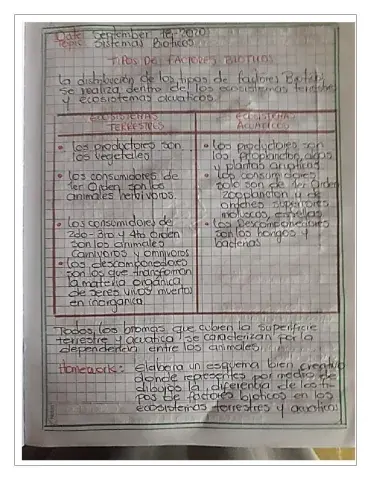 Date: September 16-2020
Topic: Sistemas Bioticos
TIPOS DE FACTORES BIOTICOS
La distribución de los tipos de factores Bioticos
se realiza dentro de los ecosistemas terrestres
y ecosistemas acuaticos.
ECOSISTEMAS
TERRESTRES
• los productores son
los vegetales
• los consumidores de
1er Orden son los
animales herbivoros.
• los consumidores de
2do - 3ro y 4to orden
son los animales
carnivoros y omnivoros
• los descomponedores
son los que transforman
la materia orgánica
de seres vivos muertos
en inorganica.
ECOSISTEMAS
ACUATICOS
• los productores son
los fitoplancton, algas
y plantas acuaticas.
• los consumidores
solo son de 1er Orden
zooplancton y de
ordenes superiores
moluscos, estrellas
• los Descomponedores
son los hongos y
bacterias
Todos los biomas que cubren la superficie
terrestre y acuatica se caracterizan por la
dependencia entre los animales.
Homework: Elabora un esquema bien creativo
donde representes por medio de
dibujos la diferencia de los ti-
pos de factores bioticos en los
ecosistemas terrestres y acuaticos